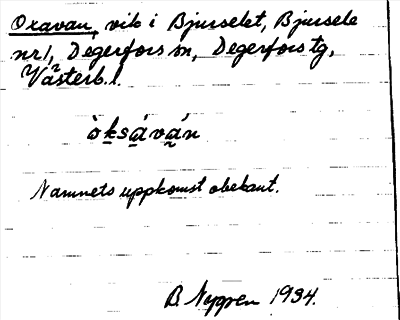 Oxavan, vik i Bjurselet, Bjursele
nr 1, Degerfors sn, Degerfors tg,
Västerb. l.
òk̲sá̲vá̲n
Namnets uppkomst obekant.
B. Nygren 1934.